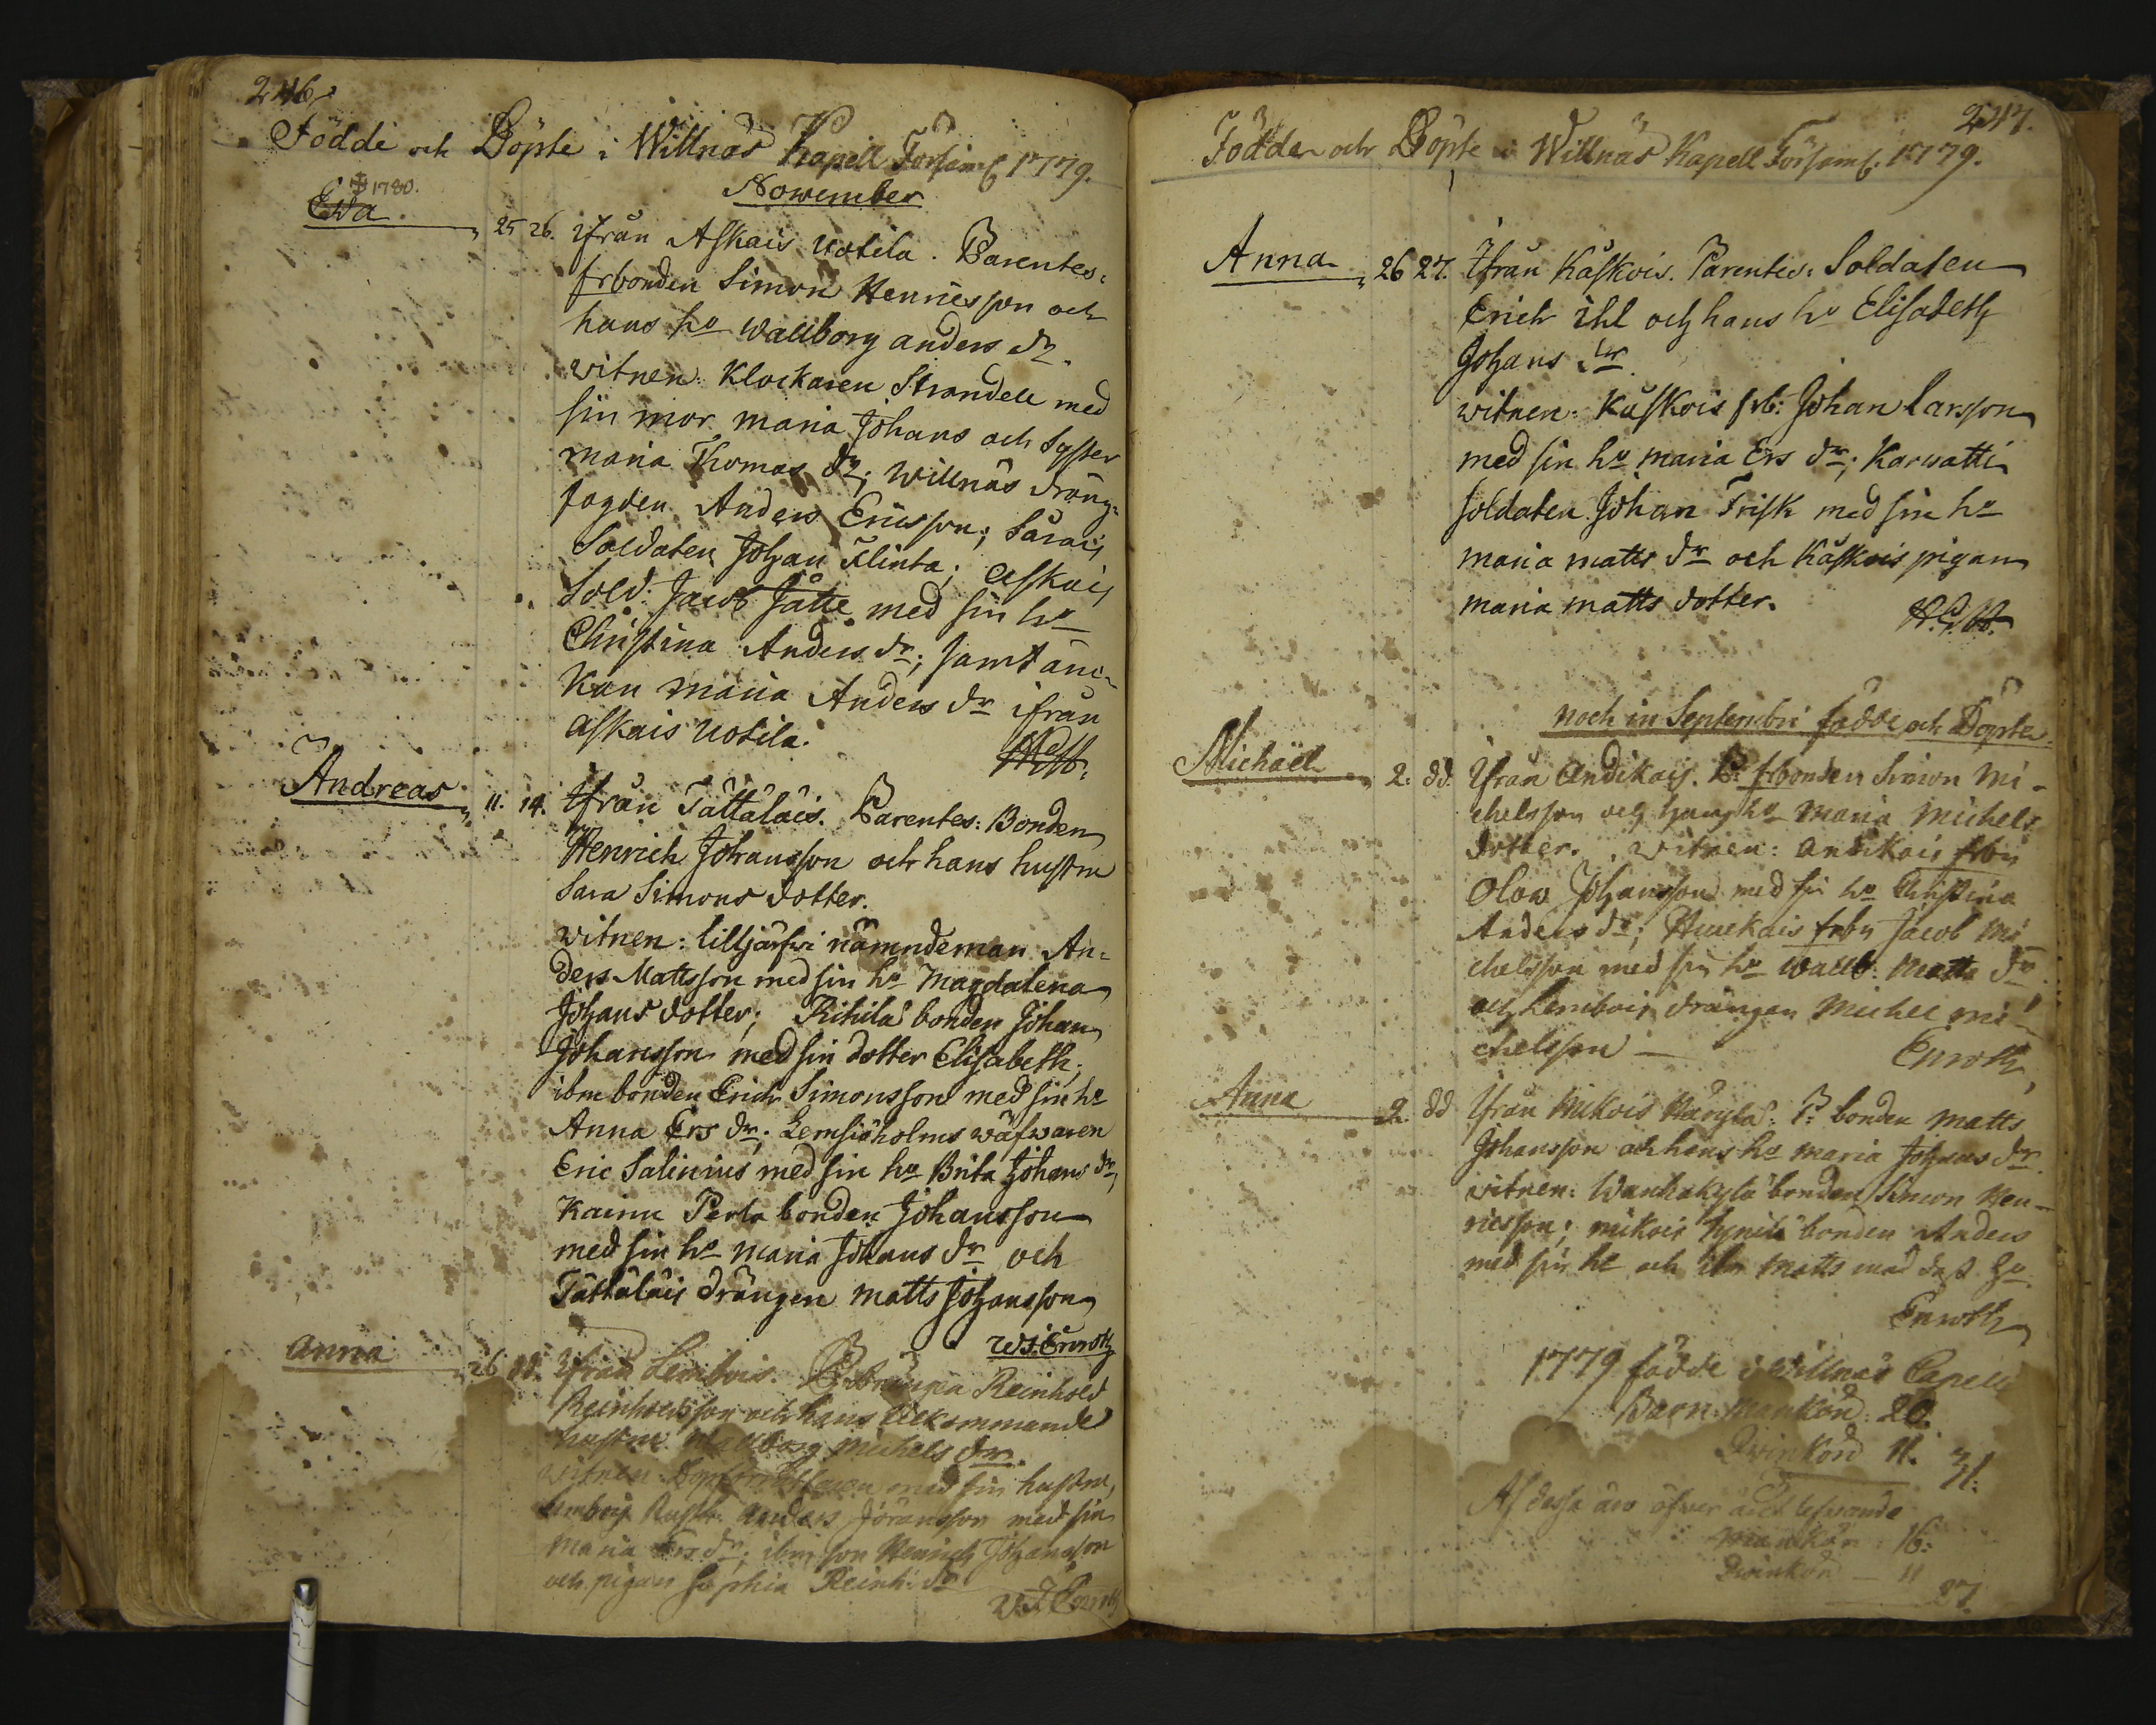 246.
Födde och Döpte i Willnäs Kapell Församl. 1779.
November
✝ 1780.
Ewa 25 26. ifrån Askais Uotila. Parentes:
frbonden Simon Henricsson och
hans ho Wallborg anders dr.
witnen: Klockaren Strandell med
sin mor maria Johans och Syster
maria Thomas dr; Willnäs dräng-
fogden Anders Ericsson; Särais
Soldaten Johan Flinta; Askais
Sold: Jacob Jätte med sin ho
Christina Anders dr; samt än-
kan maria Anders dr ifrån
askais Uotila.
Andreas 11. 14. Ifrån Tättäläis. Parentes: Bonden
Henrich Johansson och hans hustru
Sara Simons dotter.
witnen: lilljärfwi nämndeman An-
ders Mattsson med sin ho Magdalena
Johans dotter; Kihilä bonden Johan
Johansson med sin dotter Elisabeth;
ibm bonden Erich Simonsson med sin ho
Anna Ers dr; Lemsiöholms wäfwaren
Eric Salinius med sin ho Brita Johans dr,
Kainu Perla bonden Johansson
med sin ho maria Johans dr och
Tättäläis drängen matts Johansson
Ws: Enroth
Anna 26 dd. Ifrån Lembois. P: Reinhold
Reinholdsson och hans
hustru Wallborg Michels dr.
witnen: med sin hustru,
Lembois Rusth: Anders Jöransson med sin
Maria Ers dr; ibm son Henrich Johansson
och pigan Sophia Reinh: dr
Enroth
247.
Födde och Döpte i Willnäs Kapell Församl. 1779.
Anna 26 27. Ifrån Kaskois. Parentes: Soldaten
Erich ihl och hans ho Elisabeth
Johans dr.
witnen: Kaskois frb: Johan Larsson
med sin ho maria Ers dr; Karwatti
soldaten Johan Frisk med sin ho
maria matts dr och Kaskois pigan
maria matts dotter.
noch in Septembri födde och Döpte.
Michaël 2. dd. Ifrån Andikais. P: frbonden Simon Mi-
chelsson och hans ho maria Michels
dotter. witnen: Andikais frbn
Olow Johansson med sin ho Christina
Anders dr; frbn Jacob Mi-
chelsson med sin ho Wallb: Matts dr
och Lembois drängen Michel mi-
chelsson — Enroth
Anna 2. dd Ifrån Mikois P: bonden Matts
Johansson och hans ho maria Johans dr.
witnen: Wanhakylä bonden Simon Hen-
ricsson; mikois bonden Anders
med sin ho och ibm Matts med dess ho
Enroth
1779 födde i Willnäs Capell
Barn: Mankön: 20.
Qwinkön 11. 31.
Af dessa äro öfwer året lefwande
mankön: 16.
Qwinkön — 11
27.